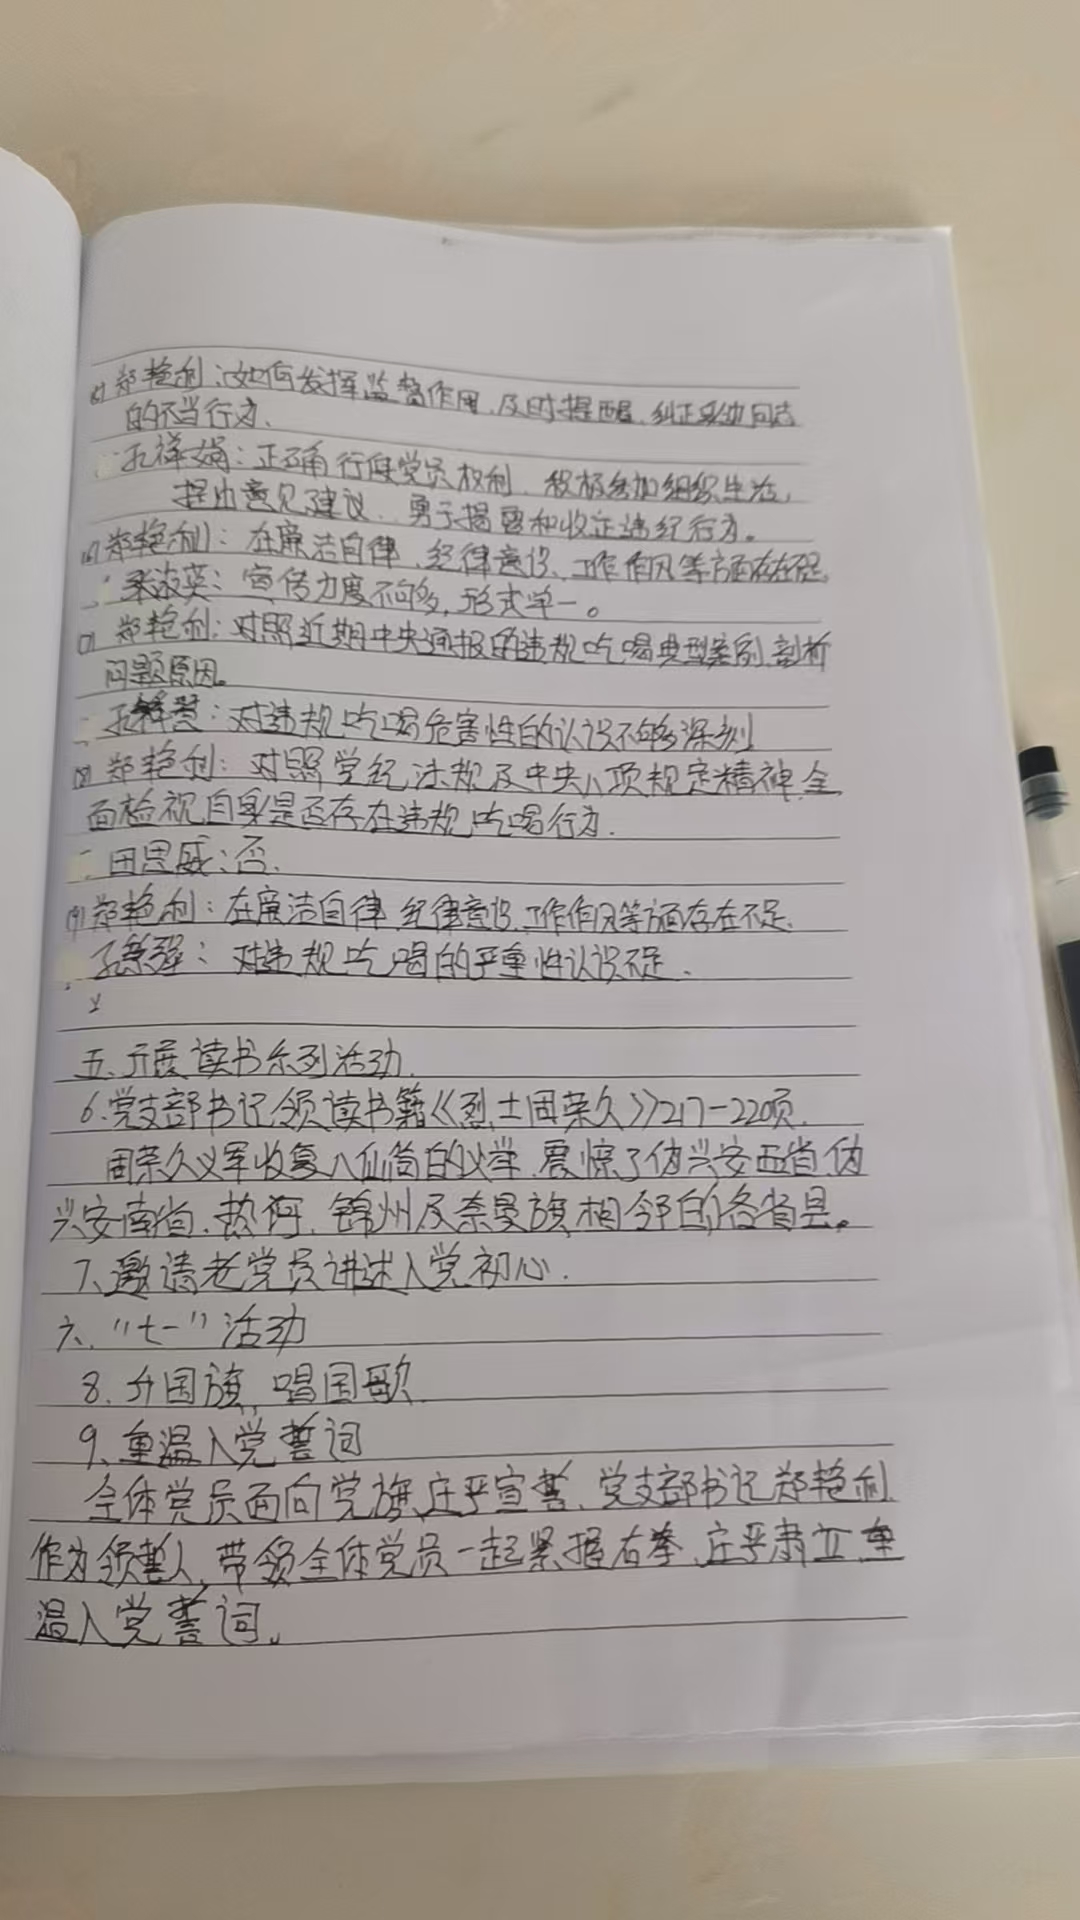 郑艳利:如何发挥监督作用,及时提醒、纠正身边同志
的不当行为、
孔祥娟:正确行使党员权利、积极参加组织生活,
提出意见建议、勇于揭露和纠正违纪行为。
郑艳利:在廉洁自律、纪律意识、工作作风等方面存在不足。
宣传力度不够,形式单一。
郑艳利:对照近期中央通报的违规吃喝典型案例,剖析
问题原因。
对违规吃喝危害性的认识不够深刻
(8)郑艳利:对照党纪、法规及中央八项规定精神,全
面检视自身是否存在违规吃喝行为.
田思威:否.
(9)郑艳利:在廉洁自律、纪律意识、工作作风等方面存在不足、
对违规吃喝的严重性认识不足.
五、开展读书系列活动.
6.党支部书记领读书籍《烈士周荣久》217-220页.
周荣久义军收复八仙筒的义举,震惊了伪兴安西省、伪
兴安南省、热河、锦州及奈曼旗相邻的各省县。
7、邀请老党员讲述入党初心.
六、"七一"活动
8.升国旗,唱国歌.
9、重温入党誓词
全体党员面向党旗庄严宣誓、党支部书记郑艳利
作为领誓人,带领全体党员一起紧握右拳、庄严肃立、重
温入党誓词。